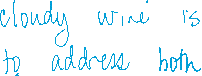 cloudy wire is
to address both